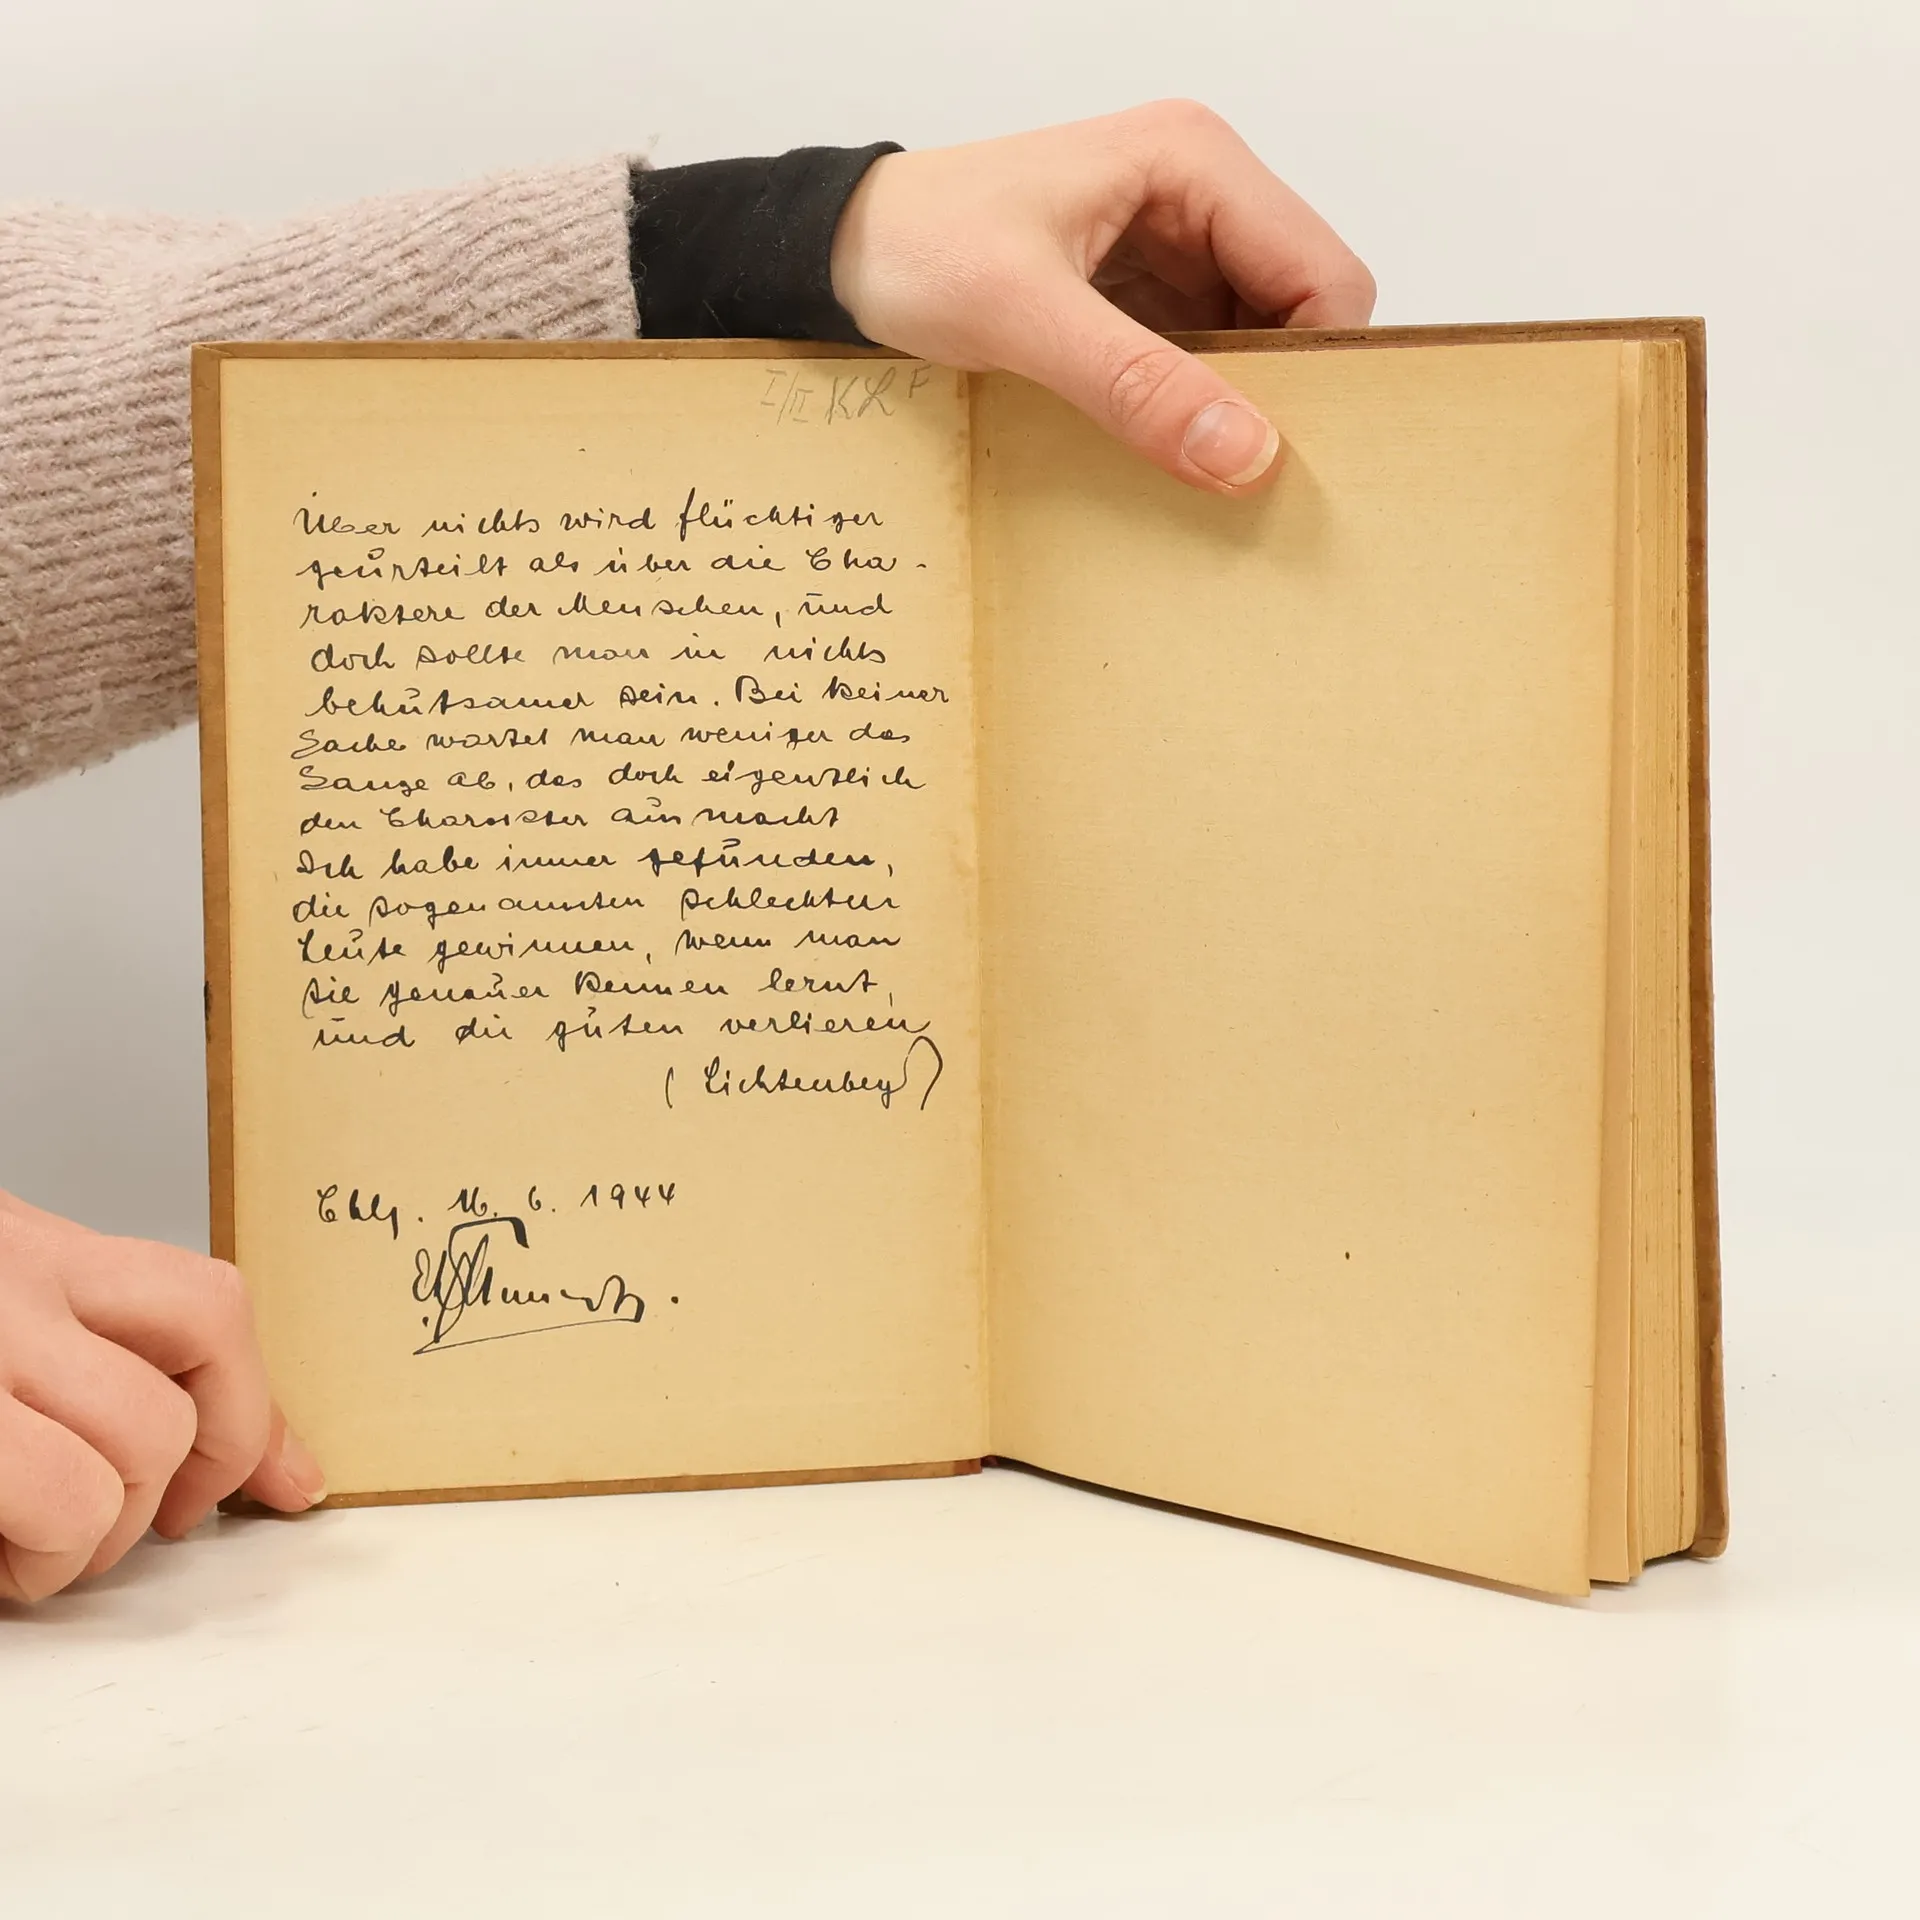 I/II KL F
Über nichts wird flüchtiger
geurteilt als über die Cha-
raktere der Menschen, und
doch sollte man in nichts
behutsamer sein. Bei keiner
Sache wartet man weniger das
Ganze ab, das doch eigentlich
den Charakter ausmacht
Ich habe immer gefunden,
die sogenannten schlechten
Leute gewinnen, wenn man
sie genauer kennen lernt,
und die guten verlieren
(Lichtenberg)
16. 6. 1944